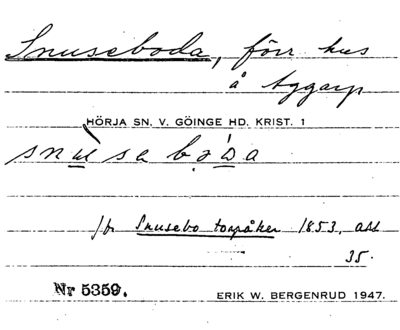 Snuseboda, förr hus
å Aggarp
HÖRJA SN. V. GÖINGE HD. KRIST. 1
snùsabo̤ᴅa
jfr Snusebo torpåker 1853, akt
35.
Nr 5359.
ERIK W. BERGENRUD 1947.